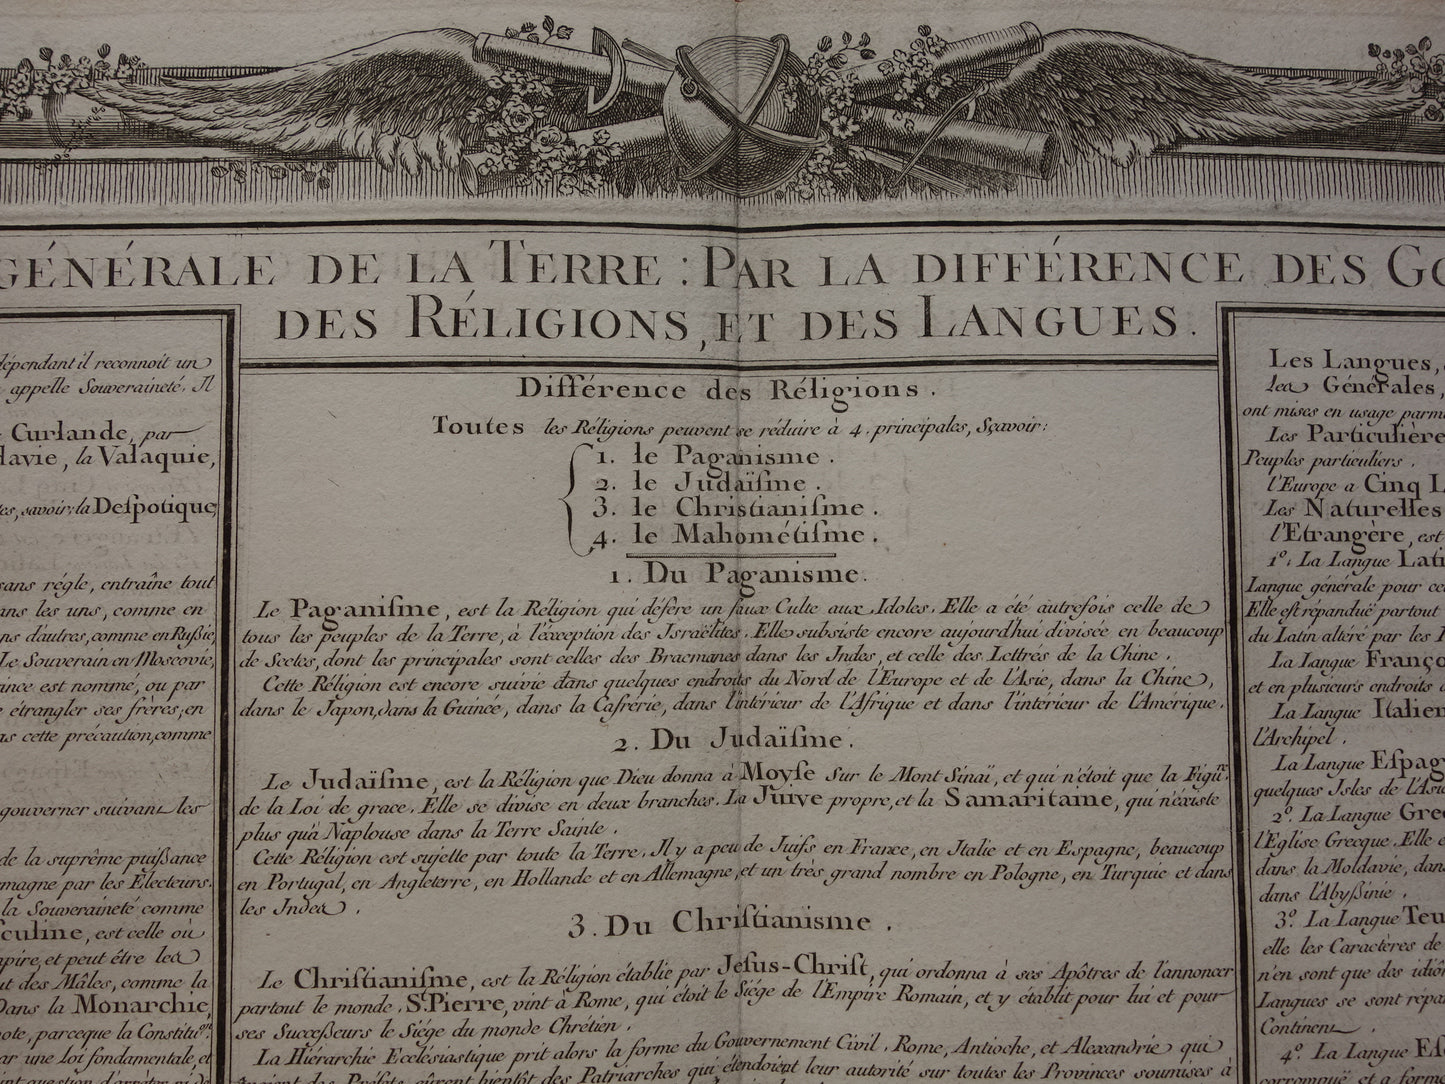 GÉNÉRALE DE LA TERRE : PAR LA DIFFÉRENCE DES GO
DES RÉLIGIONS, ET DES LANGUES.
dépendant il reconnoit un
appelle Souveraineté. Il
Curlande, par
davie, la Valaquie,
savoir: la Deſpotique,
sans régle, entraîne tout
dans les uns, comme en
dans d'autres, comme en Rußie,
Le Souverain en Moscovie,
ince est nommé, ou par
étrangler ses frères, en
cette précaution, comme
gouverner suivant les
de la suprême puißance
emagne par les Electeurs.
la Souveraineté comme
ſculine, est celle où
pire, et peut être les
ut des Mâles, comme la
Dans la Monarchie,
ote, parceque la Constituon.
ar une Loi fondamentale, et
Différence des Réligions.
Toutes les Réligions peuvent se réduire à 4. principales, Sçavoir:
1. le Paganisme.
2. le Judaïſme.
3. le Chriſtianiſme.
4. le Mahométiſme.
1. Du Paganisme.
Le Paganiſme, est la Réligion qui défere un faux Culte aux Idoles. Elle a été autrefois celle de
tous les peuples de la Terre, à l'exception des Israëlites. Elle subsiste encore aujourd'hui divisée en beaucoup
de Sectes, dont les principales sont celles des Bracmanes dans les Indes, et celle des Lettrés de la Chine.
Cette Réligion est encore suivie dans quelques endroits du Nord de l'Europe et de l'Asie, dans la Chine,
dans le Japon, dans la Guinée, dans la Cafrérie, dans l'intérieur de l'Afrique et dans l'intérieur de l'Amérique.
2. Du Judaïſme.
Le Judaïſme, est la Réligion que Dieu donna à Moyſe sur le Mont Sinaï, et qui n'étoit que la Figure
de la Loi de grace. Elle se divise en deux branches. La Juive propre, et la Samaritaine, qui n'éxiste
plus qu'à Naplouse dans la Terre Sainte.
Cette Réligion est sujette par toute la Terre. Il y a peu de Juifs en France, en Italie et en Espagne, beaucoup
en Portugal, en Angleterre, en Hollande et en Allemagne, et un très grand nombre en Pologne, en Turquie et dans
les Indes.
3. Du Chriſtianisme.
Le Chriſtianiſme, est la Réligion établie par Jéſus-Chriſt, qui ordonna à ses Apôtres de l'annoncer
partout le monde. St. Pierre, vint à Rome, qui étoit le Siége de l'Empire Romain, et y établit pour lui et pour
ses Succeßeurs le Siége du monde Chrétien.
La Hiérarchie Ecclésiastique prit alors la forme du Gouvernement Civil. Rome, Antioche, et Alexandrie qui
des Préfets eûrent bientôt des Patriarches qui étendoient leur autorité sur toutes les Provinces soumises à
Les Langues,
les Générales,
ont mises en usage parmi
Les Particuliére
Peuples particuliers.
l'Europe a Cinq L
Les Naturelles
l'Etrangère, est
1º. La Langue Lati
Langue générale pour ce
Elle est répanduë partout
du Latin altéré par les
La Langue Franço
et en plusieurs endroits
La Langue Italien
l'Archipel.
La Langue Eſpag
quelques Isles de l'Asie
2º. La Langue Grec
l'Eglise Grecque. Elle
dans la Moldavie, dan
dans l'Abyßinie.
3º. La Langue Teu
elle les Caractères de
n'en sont que des idiô
Langues se sont répa
Continent.
4º. La Langue Eſc